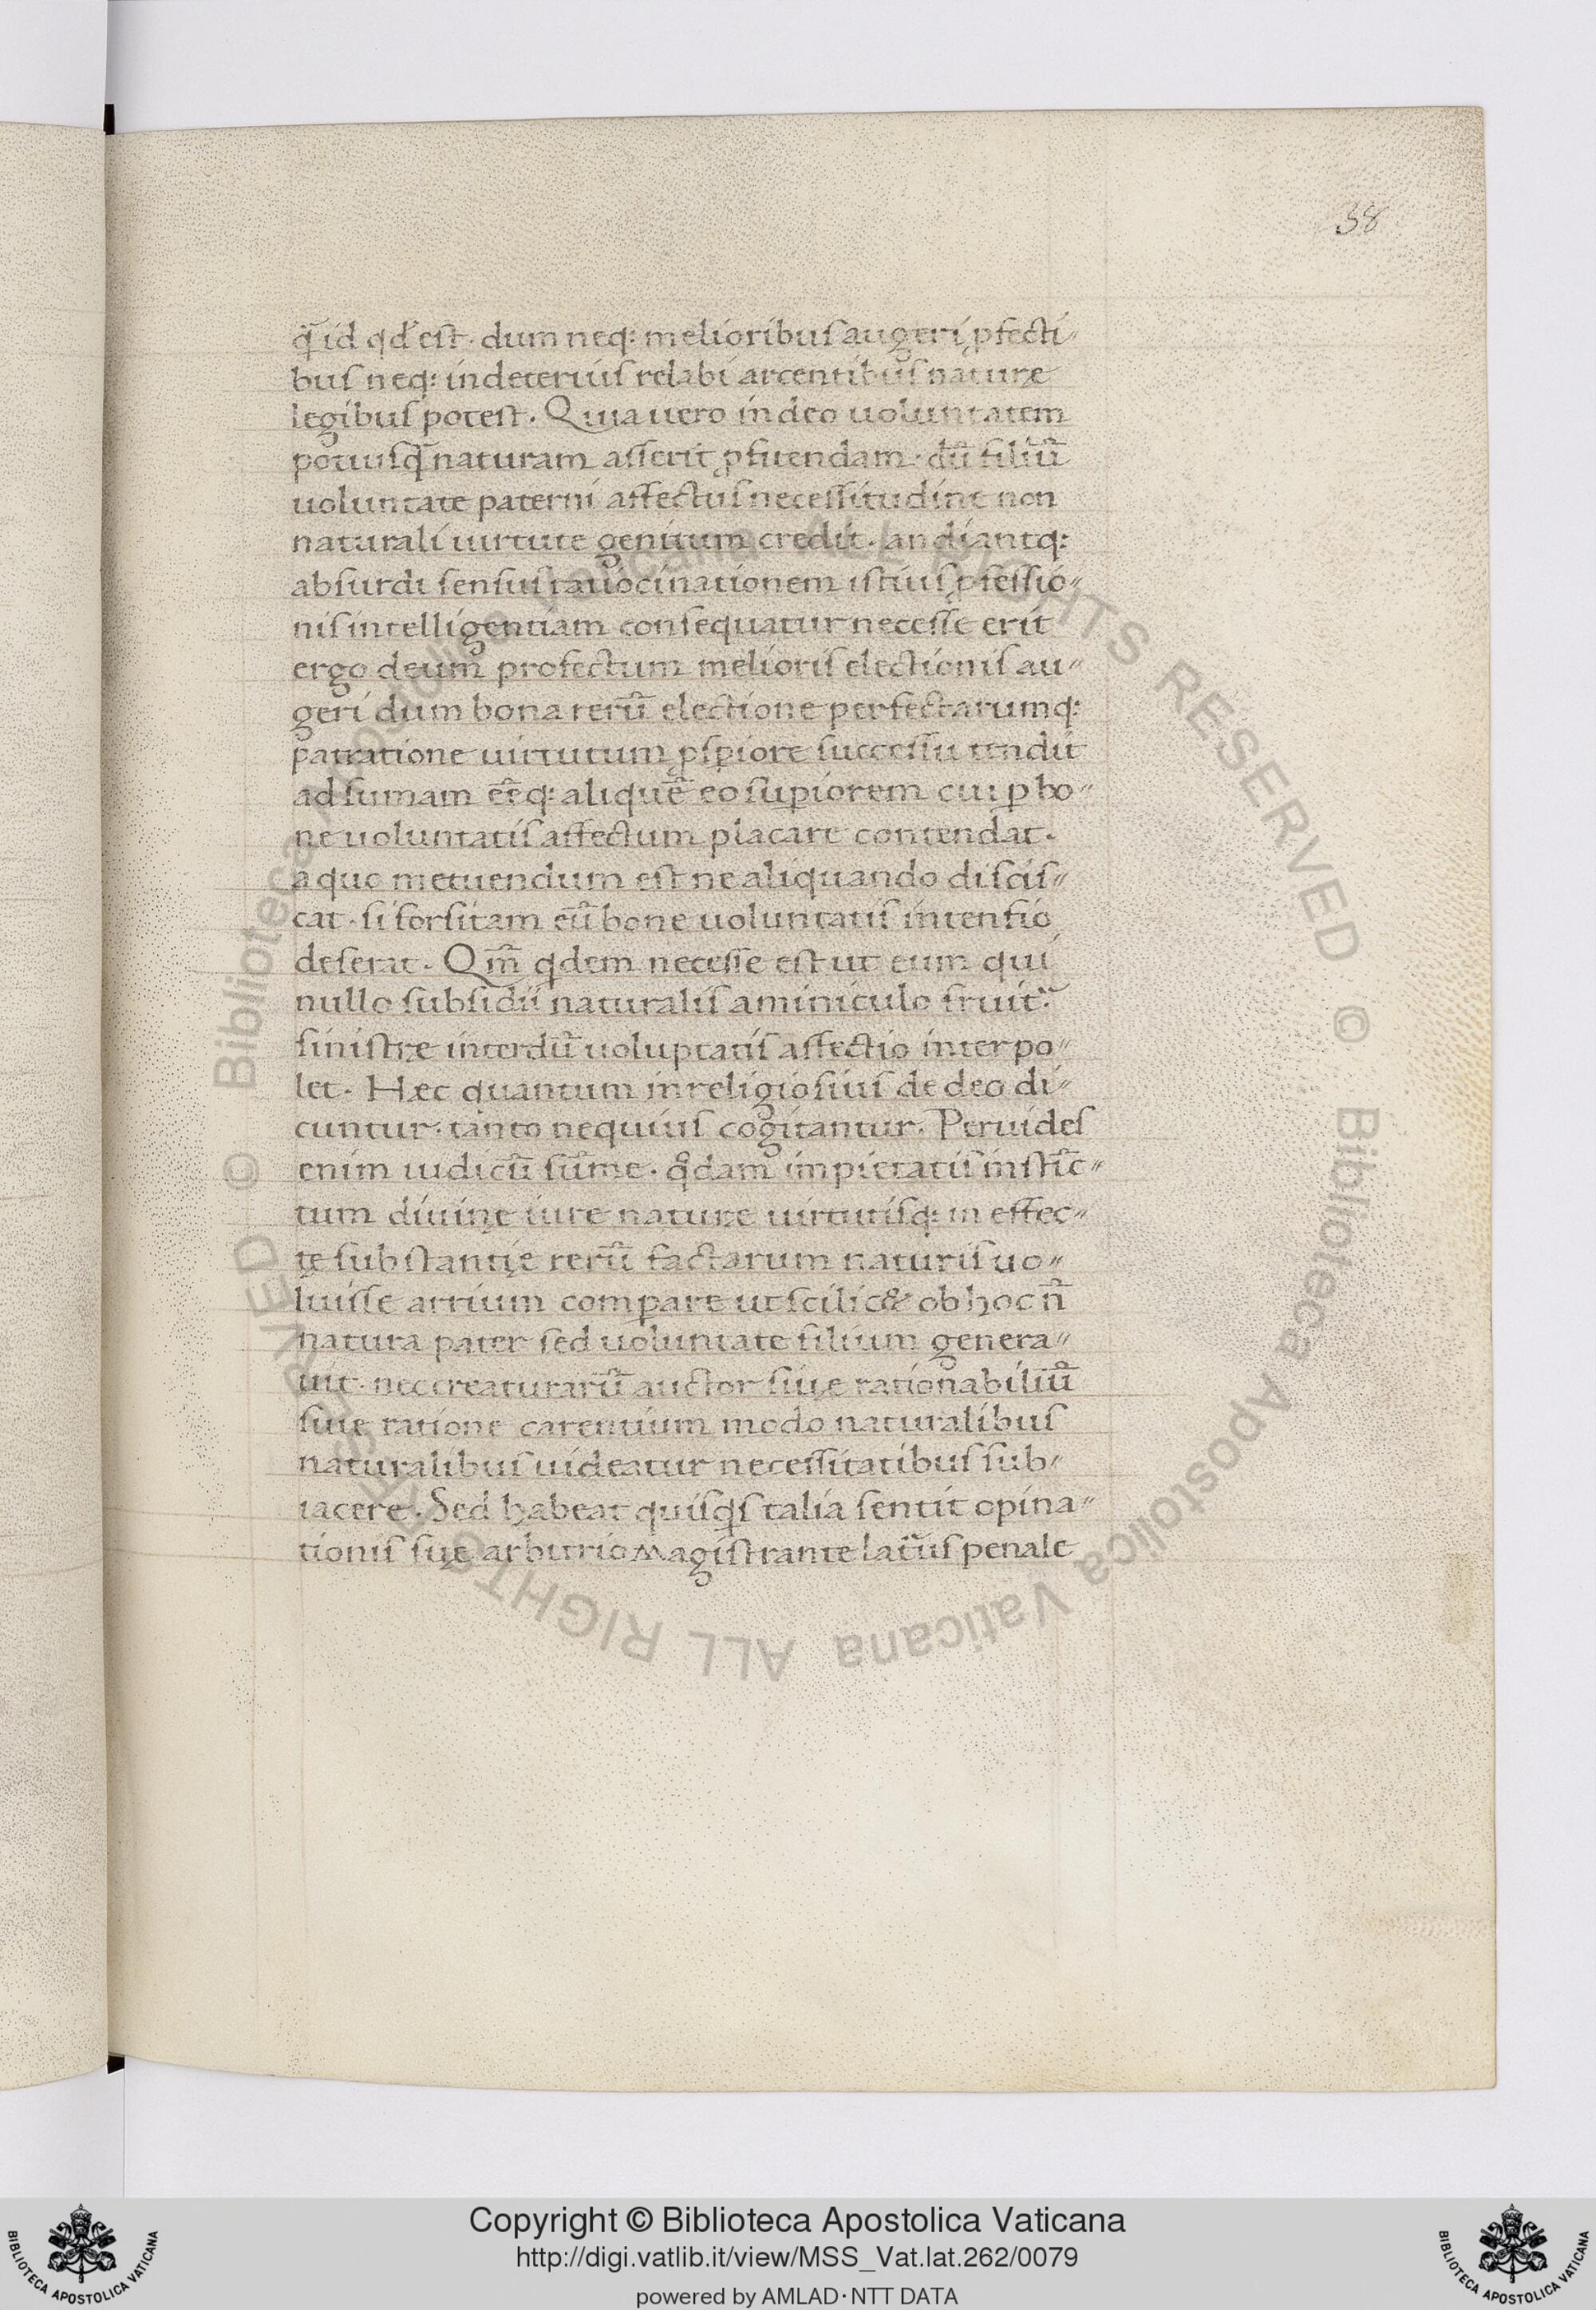 38
q̃ id qd̃ est· dum neq: melioribus augeri ꝓfecti〃
bus neq: in deterius relabi arcentibus naturę
legibus potest. Quia uero in deo uoluntatem
potiusq̃ naturam asserit ꝓfitendam· dũ filiũ
uoluntate paterni affectus necessitudine non
naturali uirtute genitum credit· an diantq:
absurdi sensus ratiocinationem istius ꝓfessio〃
nis intelligentiam consequatur necesse erit
ergo deum profectum melioris electionis au〃
geri dum bona rerũ electione perfectarumq:
patratione uirtutum ꝓsꝑiore successu tendit
ad sumam eẽq: aliquẽ eo suꝑiorem cui ꝑ bo〃
ne uoluntatis affectum placare contendat·
a quo metuendum est ne aliquando discis〃
cat· si forsitam eũ bone uoluntatis intensio
deserat· Qm̃ qdem necesse est ut eum qui
nullo subsidii naturalis aminiculo fruit̃
sinistre interdũ uoluptatis affectio interpo〃
let· Hæc quantum inreligiosius de deo di〃
cuntur· tanto nequius cogitantur. Peruides
enim iudicũ sũme· qdam impietatis instĩc〃
tum diuinę iure naturę uirtutisq: in effec〃
tę substantię rerũ factarum naturis uo〃
luisse arrium comꝑare ut scilic& ob hoc ñ
natura pater sed uoluntate filium genera〃
uit· nec creaturarũ auctor siue rationabiliũ
siue ratione carentium modo naturalibus
naturalibus uideatur necessitatibus sub〃
iacere· Sed habeat quisqs talia sentit opina〃
tionis suę arbitrio magistrante lat̃us penale
Biblioteca Apostolica Vaticana ALL RIGHTS RESERVED ©
Biblioteca Apostolica Vaticana ALL RIGHTS RESERVED ©
Copyright © Biblioteca Apostolica Vaticana
http://digi.vatlib.it/view/MSS_Vat.lat.262/0079
powered by AMLAD·NTT DATA
BIBLIOTECA APOSTOLICA VATICANA
BIBLIOTECA APOSTOLICA VATICANA